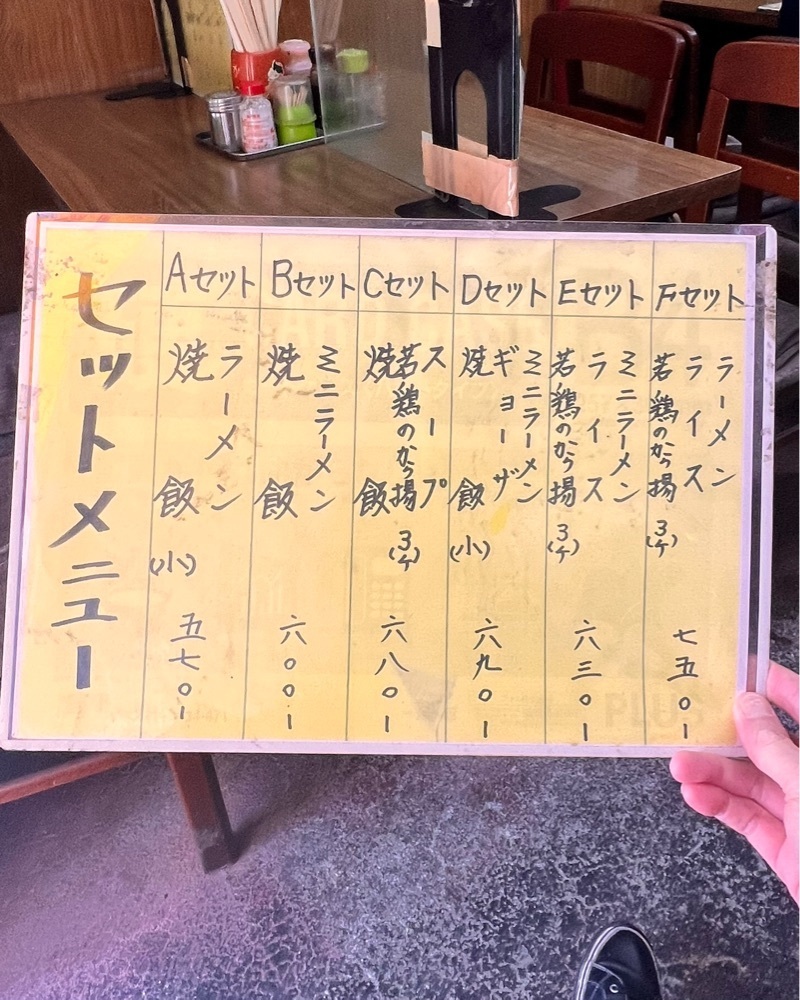 セットメニュー
Aセット
ラーメン
焼飯(小)
五七〇ー
Bセット
ミニラーメン
焼飯
六〇〇ー
Cセット
スープ
若鶏のから揚(3ケ)
焼飯
六八〇ー
Dセット
ミニラーメン
ギョーザ
焼飯(小)
六九〇ー
Eセット
ミニラーメン
ライス
若鶏のから揚(3ケ)
六三〇ー
Fセット
ラーメン
ライス
若鶏のから揚(3ケ)
七五〇ー